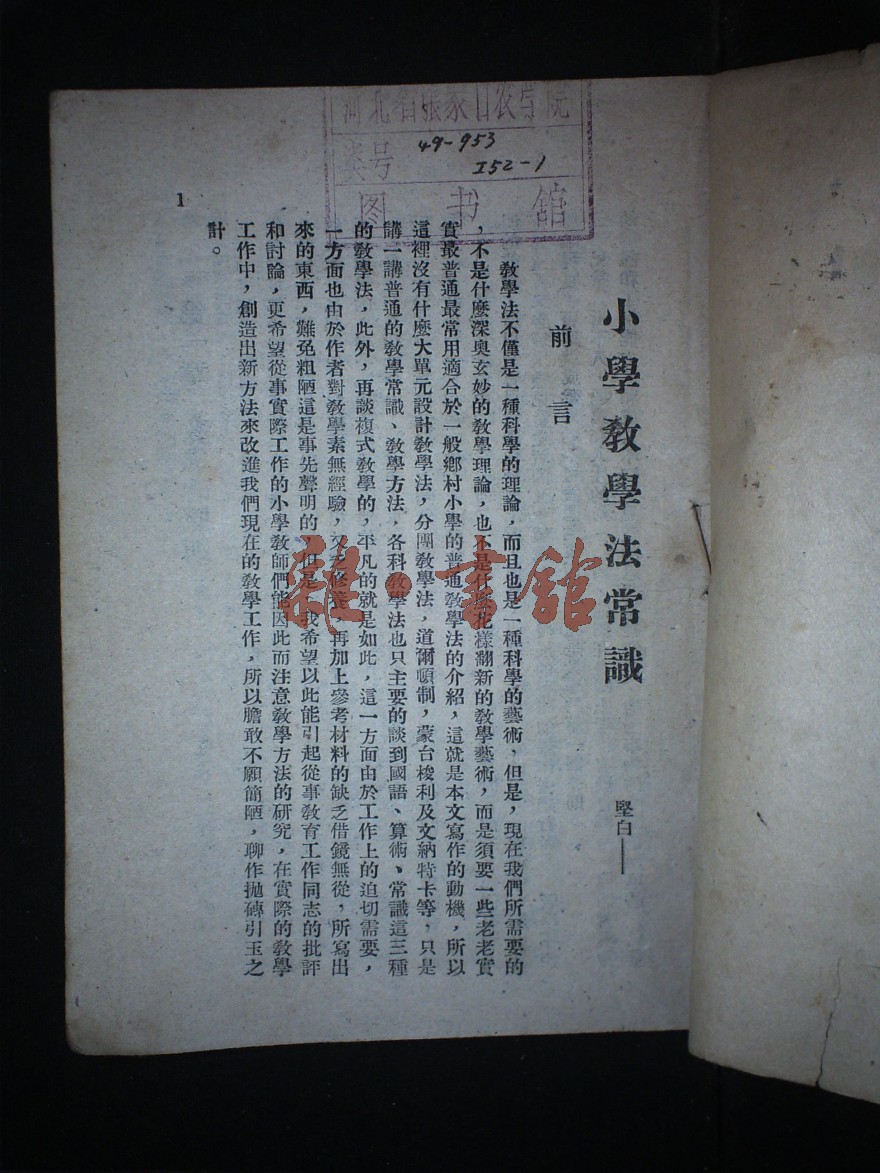 河北省張家口农学院
类号 49-953
I52-1
图书馆
小學教學法常識
堅白——
前言
教學法不僅是一種科學的理論，而且也是一種科學的藝術，但是，現在我們所需要的
，不是什麼深奧玄妙的教學理論，也不是什麼花樣翻新的教學藝術，而是須要一些老老實
實最普通最常用適合於一般鄉村小學的普通教學法的介紹，這就是本文寫作的動機，所以
這裡沒有什麼大單元設計教學法，分團教學法，道爾頓制，蒙台梭利及文納特卡等，只是
講一講普通的教學常識、教學方法，各科教學法也只主要的談到國語、算術、常識這三種
的教學法，此外，再談複式教學的，平凡的就是如此，這一方面由於工作上的迫切需要，
一方面也由於作者對教學素無經驗，又乏修養，再加上參考材料的缺乏借鏡無從，所寫出
來的東西，難免粗陋這是事先聲明的，但是，我希望以此能引起從事教育工作同志的批評
和討論，更希望從事實際工作的小學教師們能因此而注意教學方法的研究，在實際的教學
工作中，創造出新方法來改進我們現在的教學工作，所以膽敢不願簡陋，聊作拋磚引玉之
計。
1
雜·書館